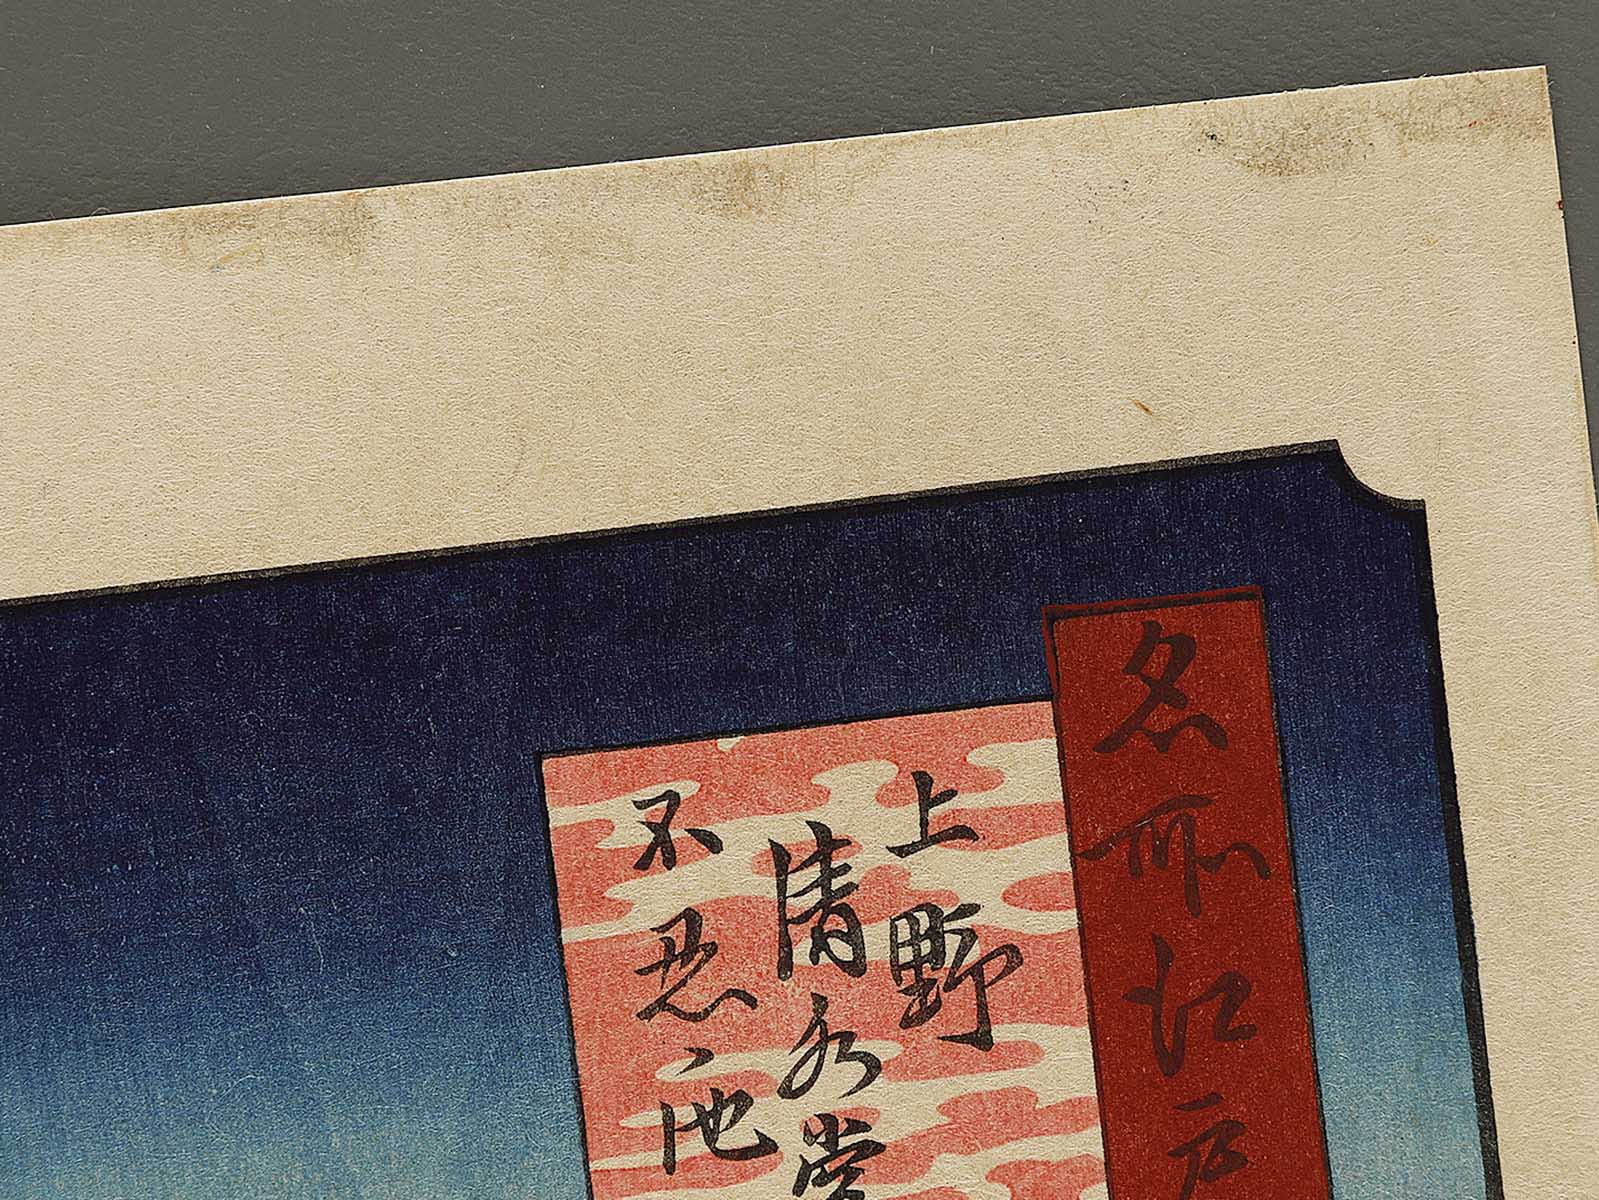 名所江戸
上野
清水堂
不忍ノ池